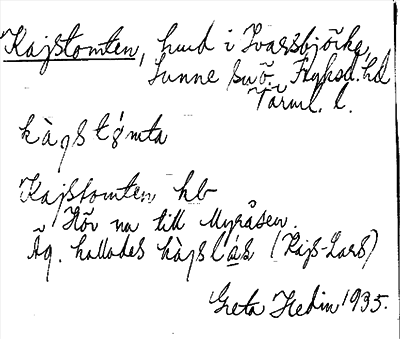 Kajstomten, hmd i Ivarsbjörke,
Sunne sn Ö. Fryksd. hd
Värml. l.
kàjstómta
Kajstomten hb
Hör nu till Myråsen.
Äg. kallades kàjslás (Kajs-Lars)
Greta Hedin 1935.